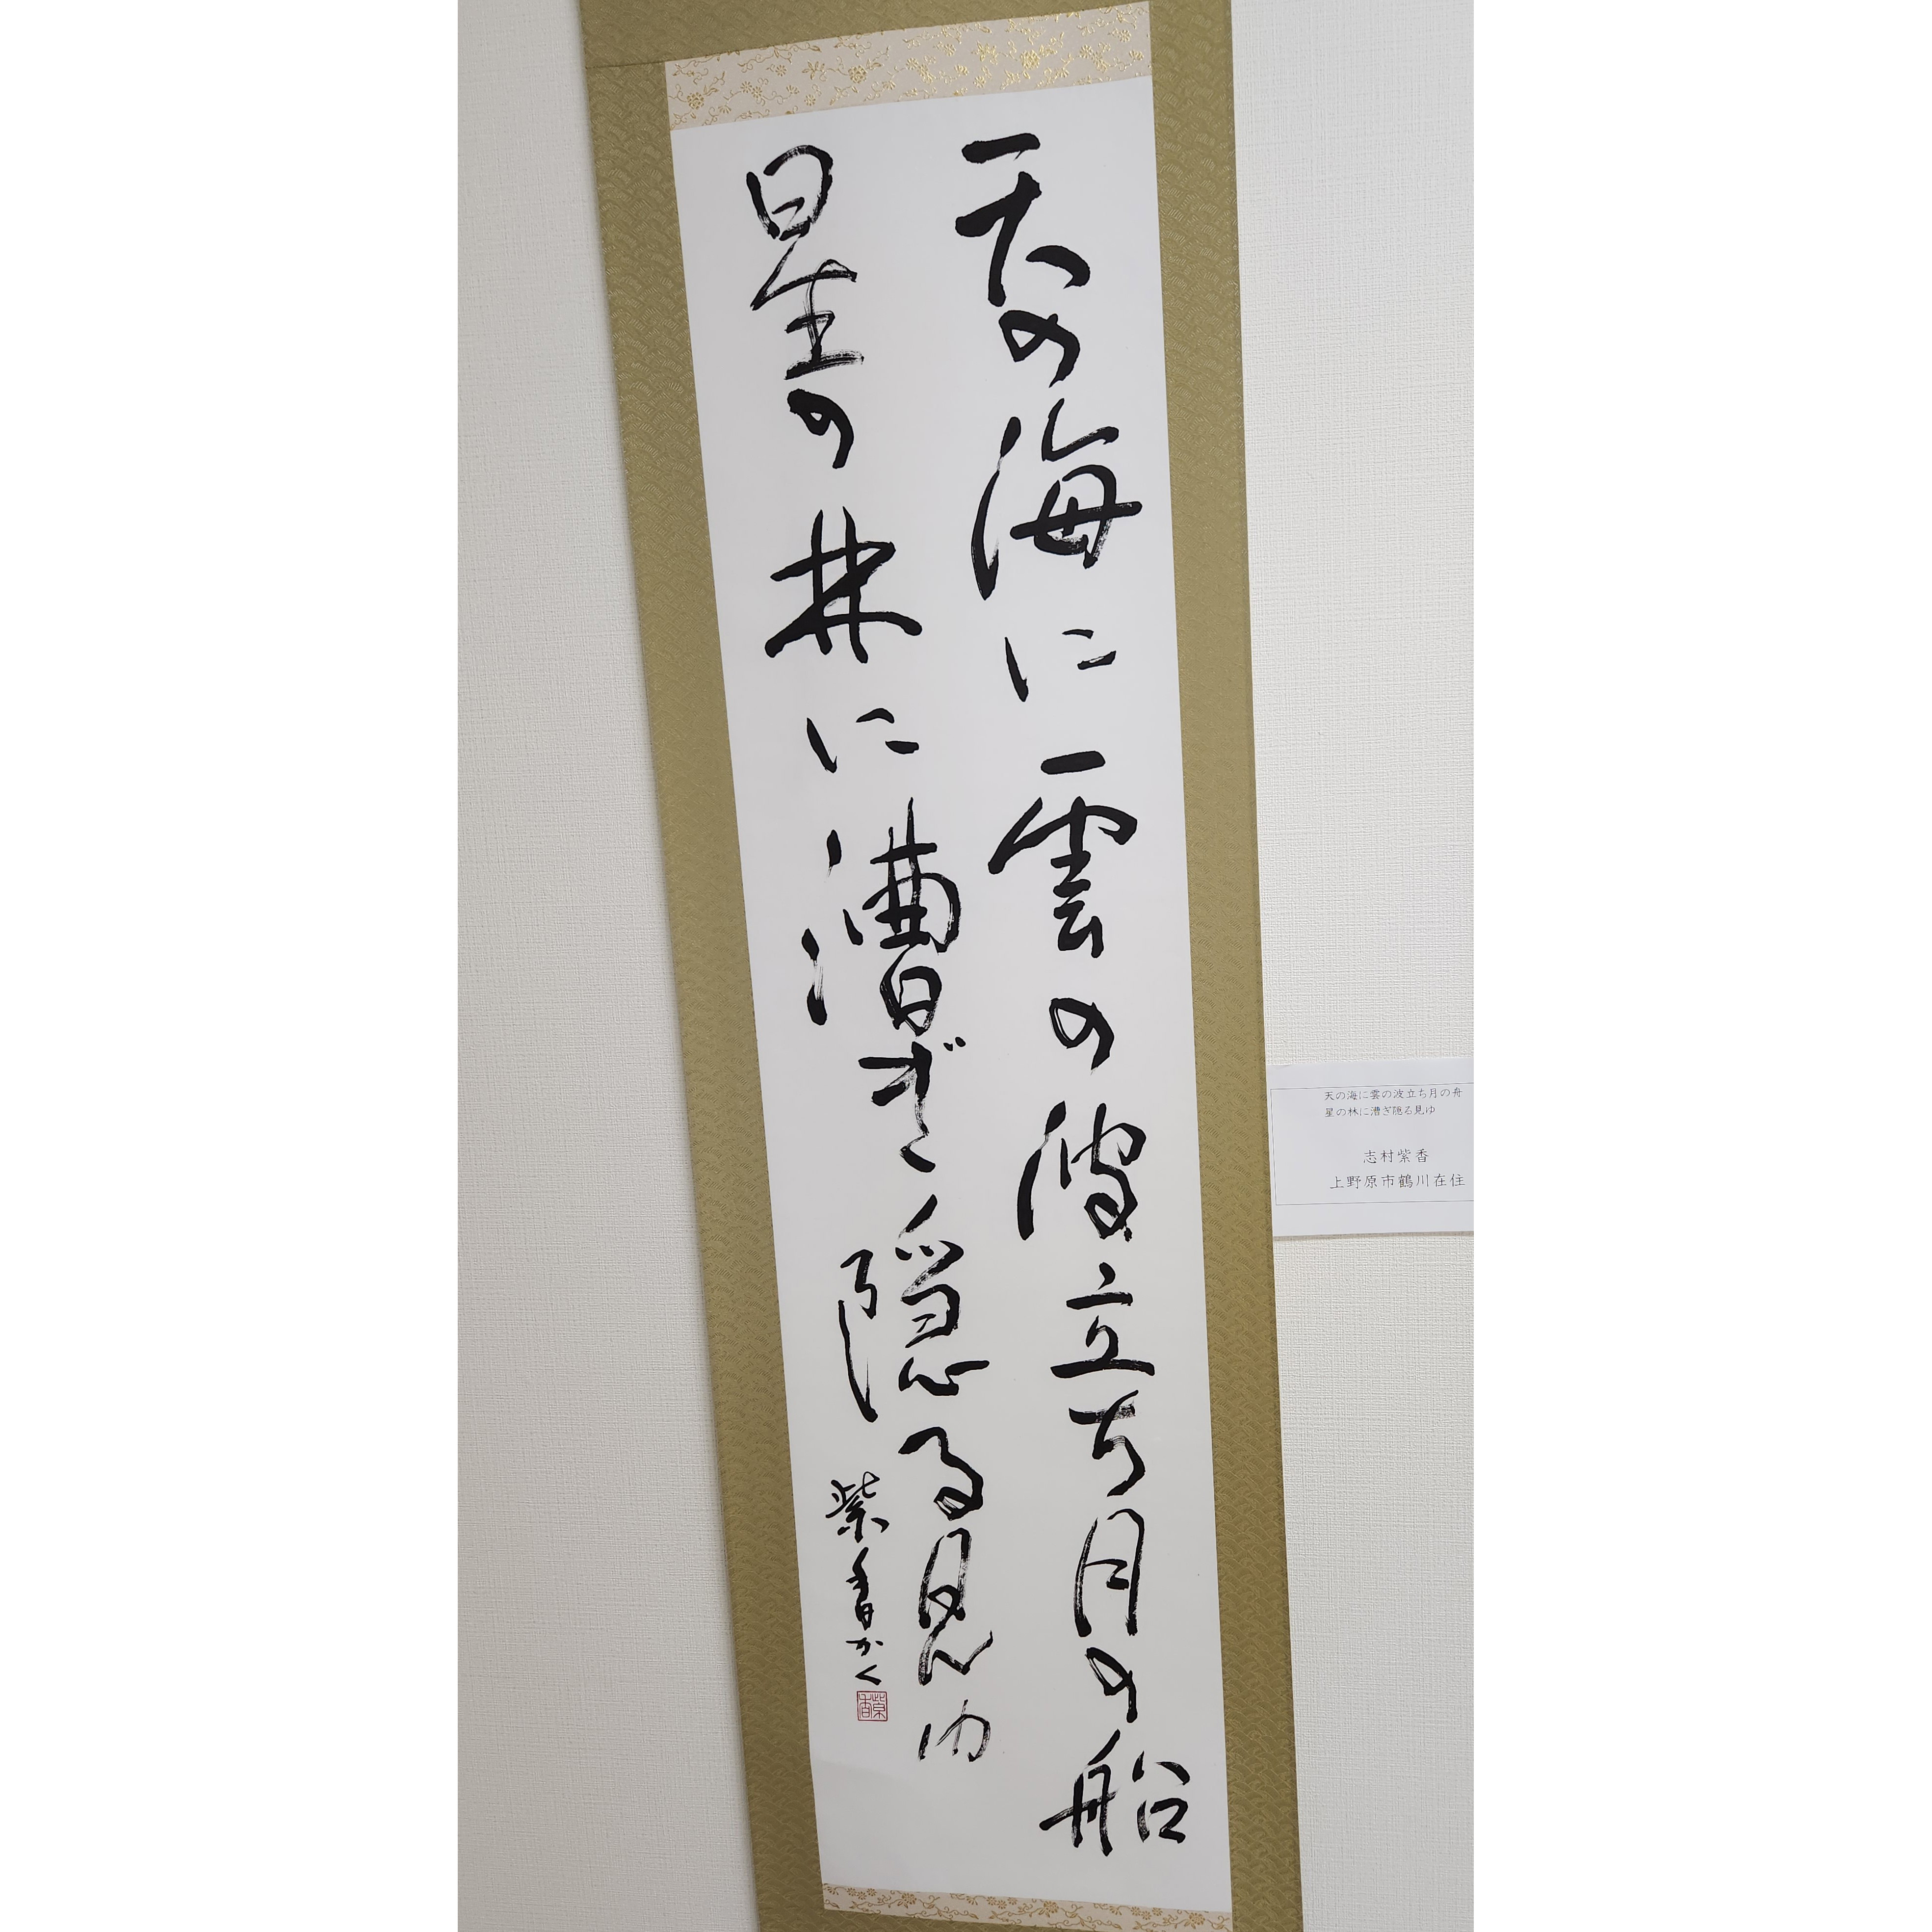 天の海に雲の波立ち月の船
星の林に漕ぎ隠る見ゆ
紫香かく
紫香
天の海に雲の波立ち月の舟
星の林に漕ぎ隠る見ゆ
志村紫香
上野原市鶴川在住